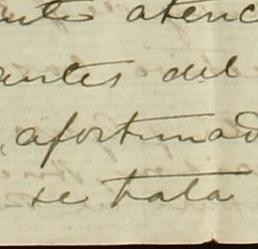 ante atenc
antes del
afortunad
se trata